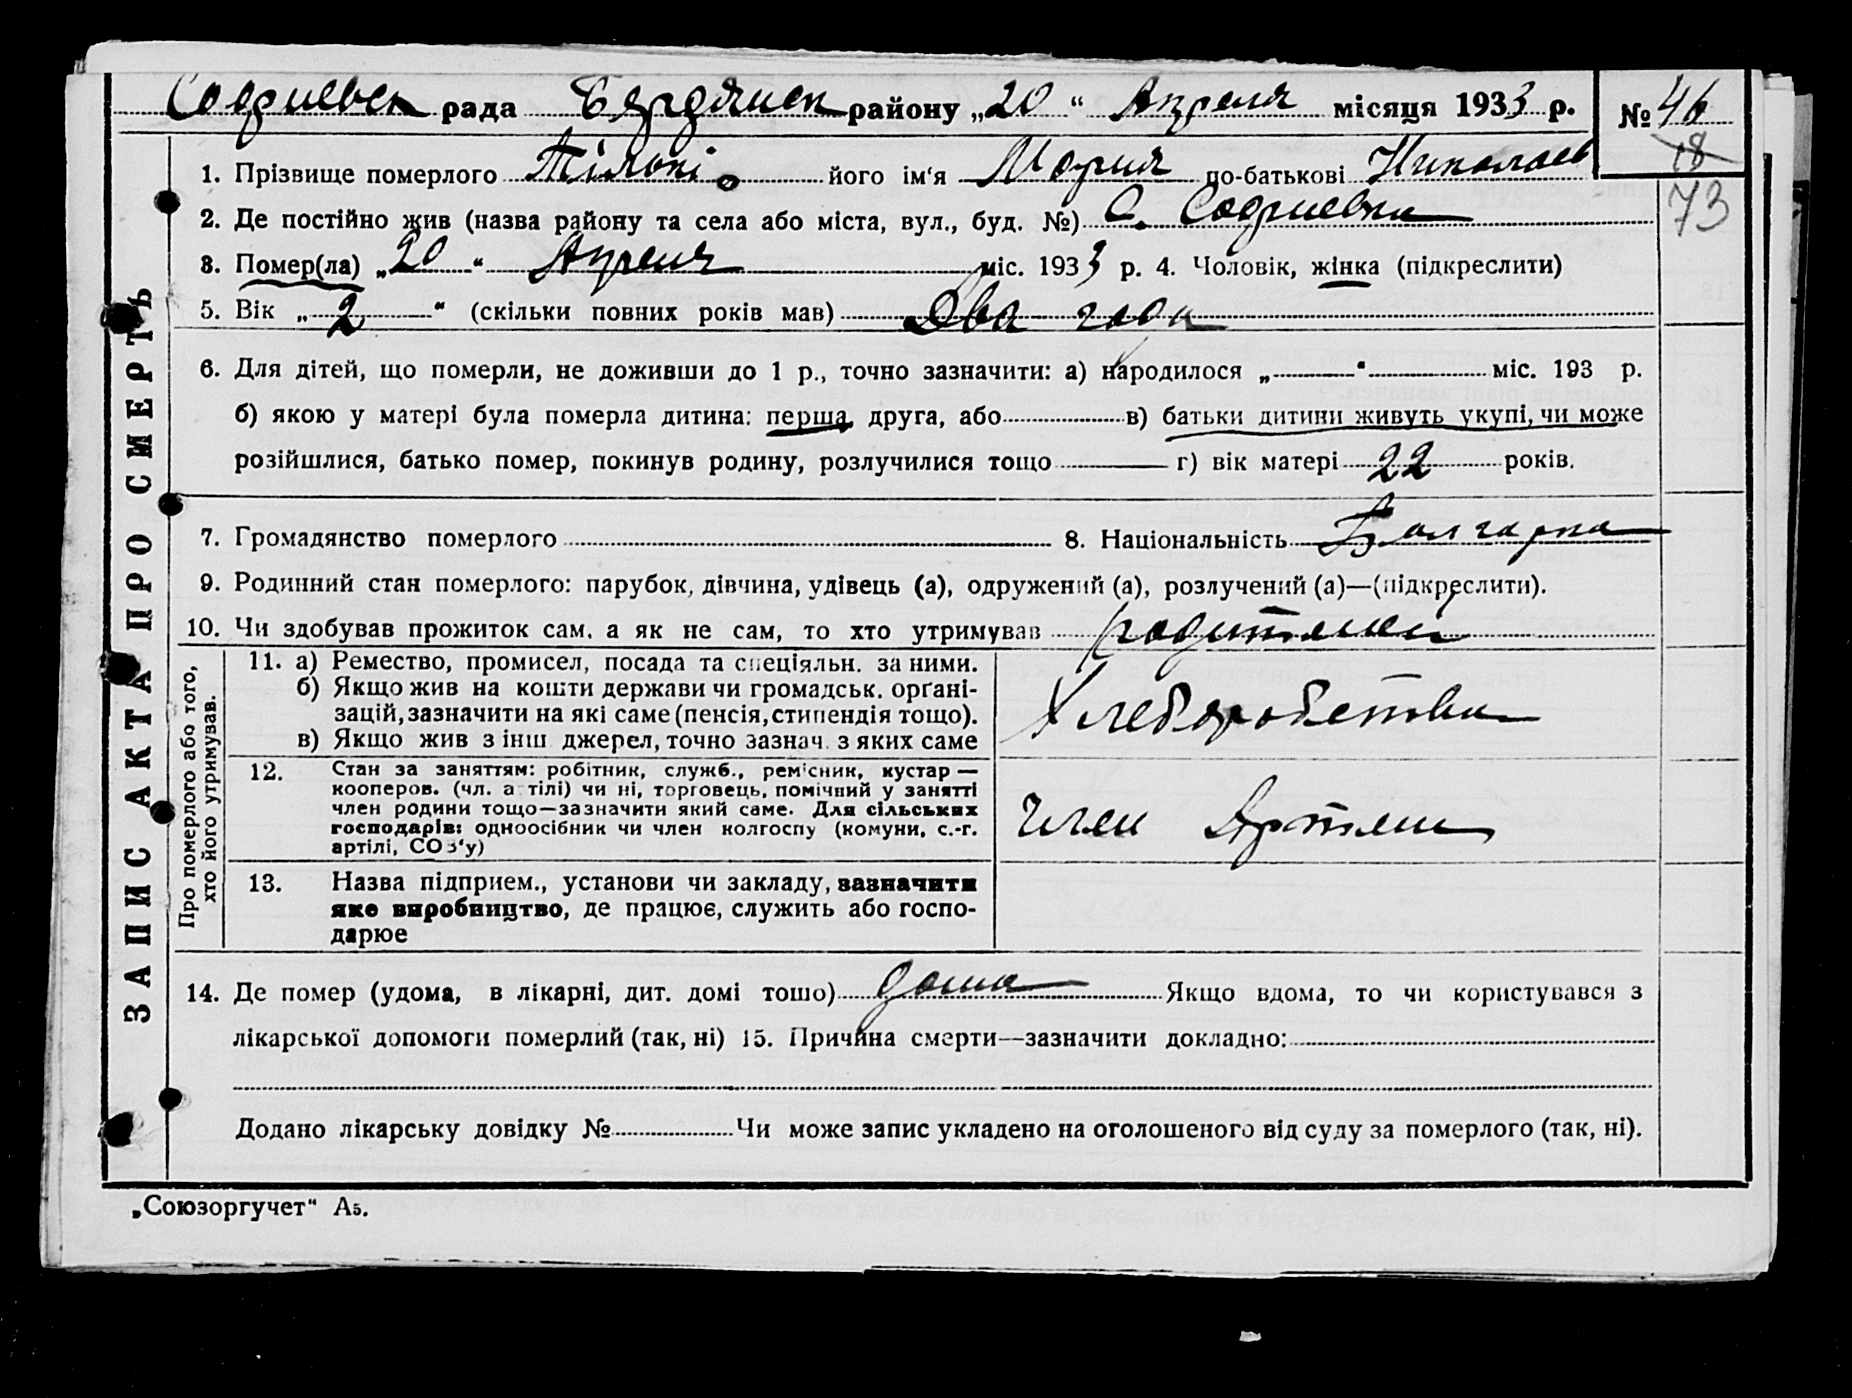 Софиевск рада Бердянск району „20“ Апреля місяця 1933 р. № 46
18
73
1. Прізвище померлого його ім‘я Мария по-батькові Николаев
2. Де постійно жив (назва району та села або міста, вул., буд. №) С. Софиевки
3. Помер(ла) „20“ Апреля міс. 1933 р. 4. Чоловік, жінка (підкреслити)
5. Вік „2“ (скільки повних років мав) Два года
6. Для дітей, що померли, не доживши до 1 р., точно зазначити: а) народилося „ “ міс. 193 р.
б) якою у матері була померла дитина: перша, друга, або в) батьки дитини живуть укупі, чи може
розійшлися, батько помер, покинув родину, розлучилися тощо г) вік матері 22 років.
7. Громадянство померлого 8. Національність Болгарка
9. Родинний стан померлого: парубок, дівчина, удівець (а), одружений (а), розлучений (а)—(підкреслити).
10. Чи здобував прожиток сам, а як не сам, то хто утримував родители
ЗАПИС АКТА ПРО СМЕРТЬ
Про померлого або того, хто його утримував.
11. а) Ремество, промисел, посада та спеціяльн. за ними.
б) Якщо жив на кошти держави чи громадськ. орґані-
зацій, зазначити на які саме (пенсія, стипендія тощо).
в) Якщо жив з інш джерел, точно зазнач. з яких саме
Хлеборобство
12. Стан за заняттям: робітник, служб., рем‘сник, кустар —
кооперов. (чл. артілі) чи ні, торговець, помічний у занятті
член родини тощо—зазначити який саме. Для сільських
господарів: одноосібник чи член колгоспу (комуни, с.-г.
артілі, СОЗ‘у)
член Артели
13. Назва підприєм., установи чи закладу, зазначити
яке виробництво, де працює, служить або госпо-
дарює
14. Де помер (удома, в лікарні, дит. домі тошо) дома Якщо вдома, то чи користувався з
лікарської допомоги померлий (так, ні) 15. Причина смерти—зазначити докладно:
Додано лікарську довідку № Чи може запис укладено на оголошеного від суду за померлого (так, ні).
„Союзоргучет“ А5.